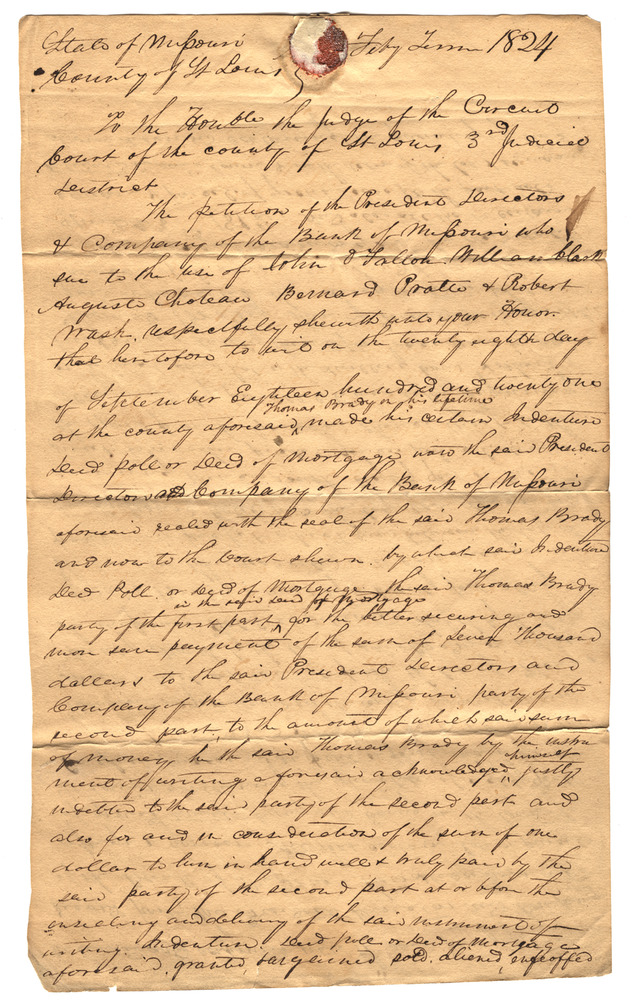 State of Missouri
County of St Louis } Feby Term 1824
To the Honble the Judge of the Circuit
Court of the county of St Louis 3rd Judicial
District
The petition of the President Directors
& Company of the Bank of Missouri who
sue to the use of John O Fallon. William Clark
Auguste Choteau Bernard Pratte & Robert
Wash. respectfully sheweth unto your Honor.
that heretofore to wit on the twenty eighth day
of September Eighteen hundred and twenty one
Thomas Brady in his lifetime
at the county aforesaid, made his certain Indenture
Deed poll or Deed of Mortgage unto the said President
Directors and Company of the Bank of Missouri
aforesaid sealed with the seal of the said Thomas Brady
and now to the Court shewn. by which said Indenture
Deed Poll. or Deed of Mortgage the said Thomas Brady
in the said Deed of Mortgage
party of the first part, for the better securing and
more sure payment of the sum of Seven Thousand
dollars to the said President Directors and
Company of the Bank of Missouri party of the
second part, to the amount of which said sum
of money, he the said Thomas Brady by the instru
ment of writing aforesaid acknowledged himself justly
indebted to the said party of the second part and
also for and in consideration of the sum of one
dollar to him in hand well & truly paid by the
said party of the second part at or before the
ensealing and delivery of the said instrument of
writing. Indenture. Deed poll. or Deed of Mortgage
aforesaid, granted, bargained sold. aliened, enfeoffed